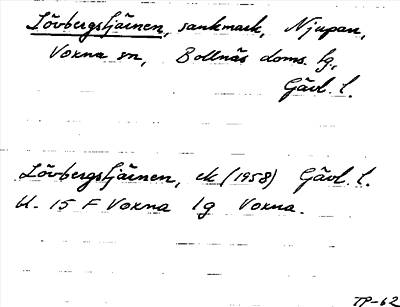 Lövbergstjärnen, sankmark, Njupan,
Voxna sn, Bollnäs doms. lg,
Gävl. l.
Lövbergstjärnen, ek (1958) Gävl. l.
U. 15 F Voxna lg Voxna.
TP-62